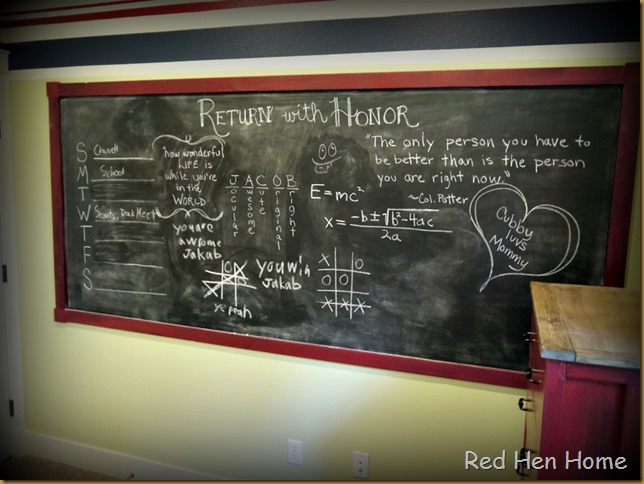 RETURN with HONOR
S Church
M School
T
W Scouts, Pack Meet
T
F
S
how wonderful
LIFE is
while you're
in the
WORLD
you are
awsome
Jakab
J A C O B
Jocular
Awesome
Cute
Original
Bright
E=mc²
x = -b±√b²-4ac
2a
"The only person you have to
be better than is the person
you are right now."
~Col. Potter
Cubby
luvs
Mommy
O
X
you win
Jakab
ye peah
X O
O O
X X X
Red Hen Home